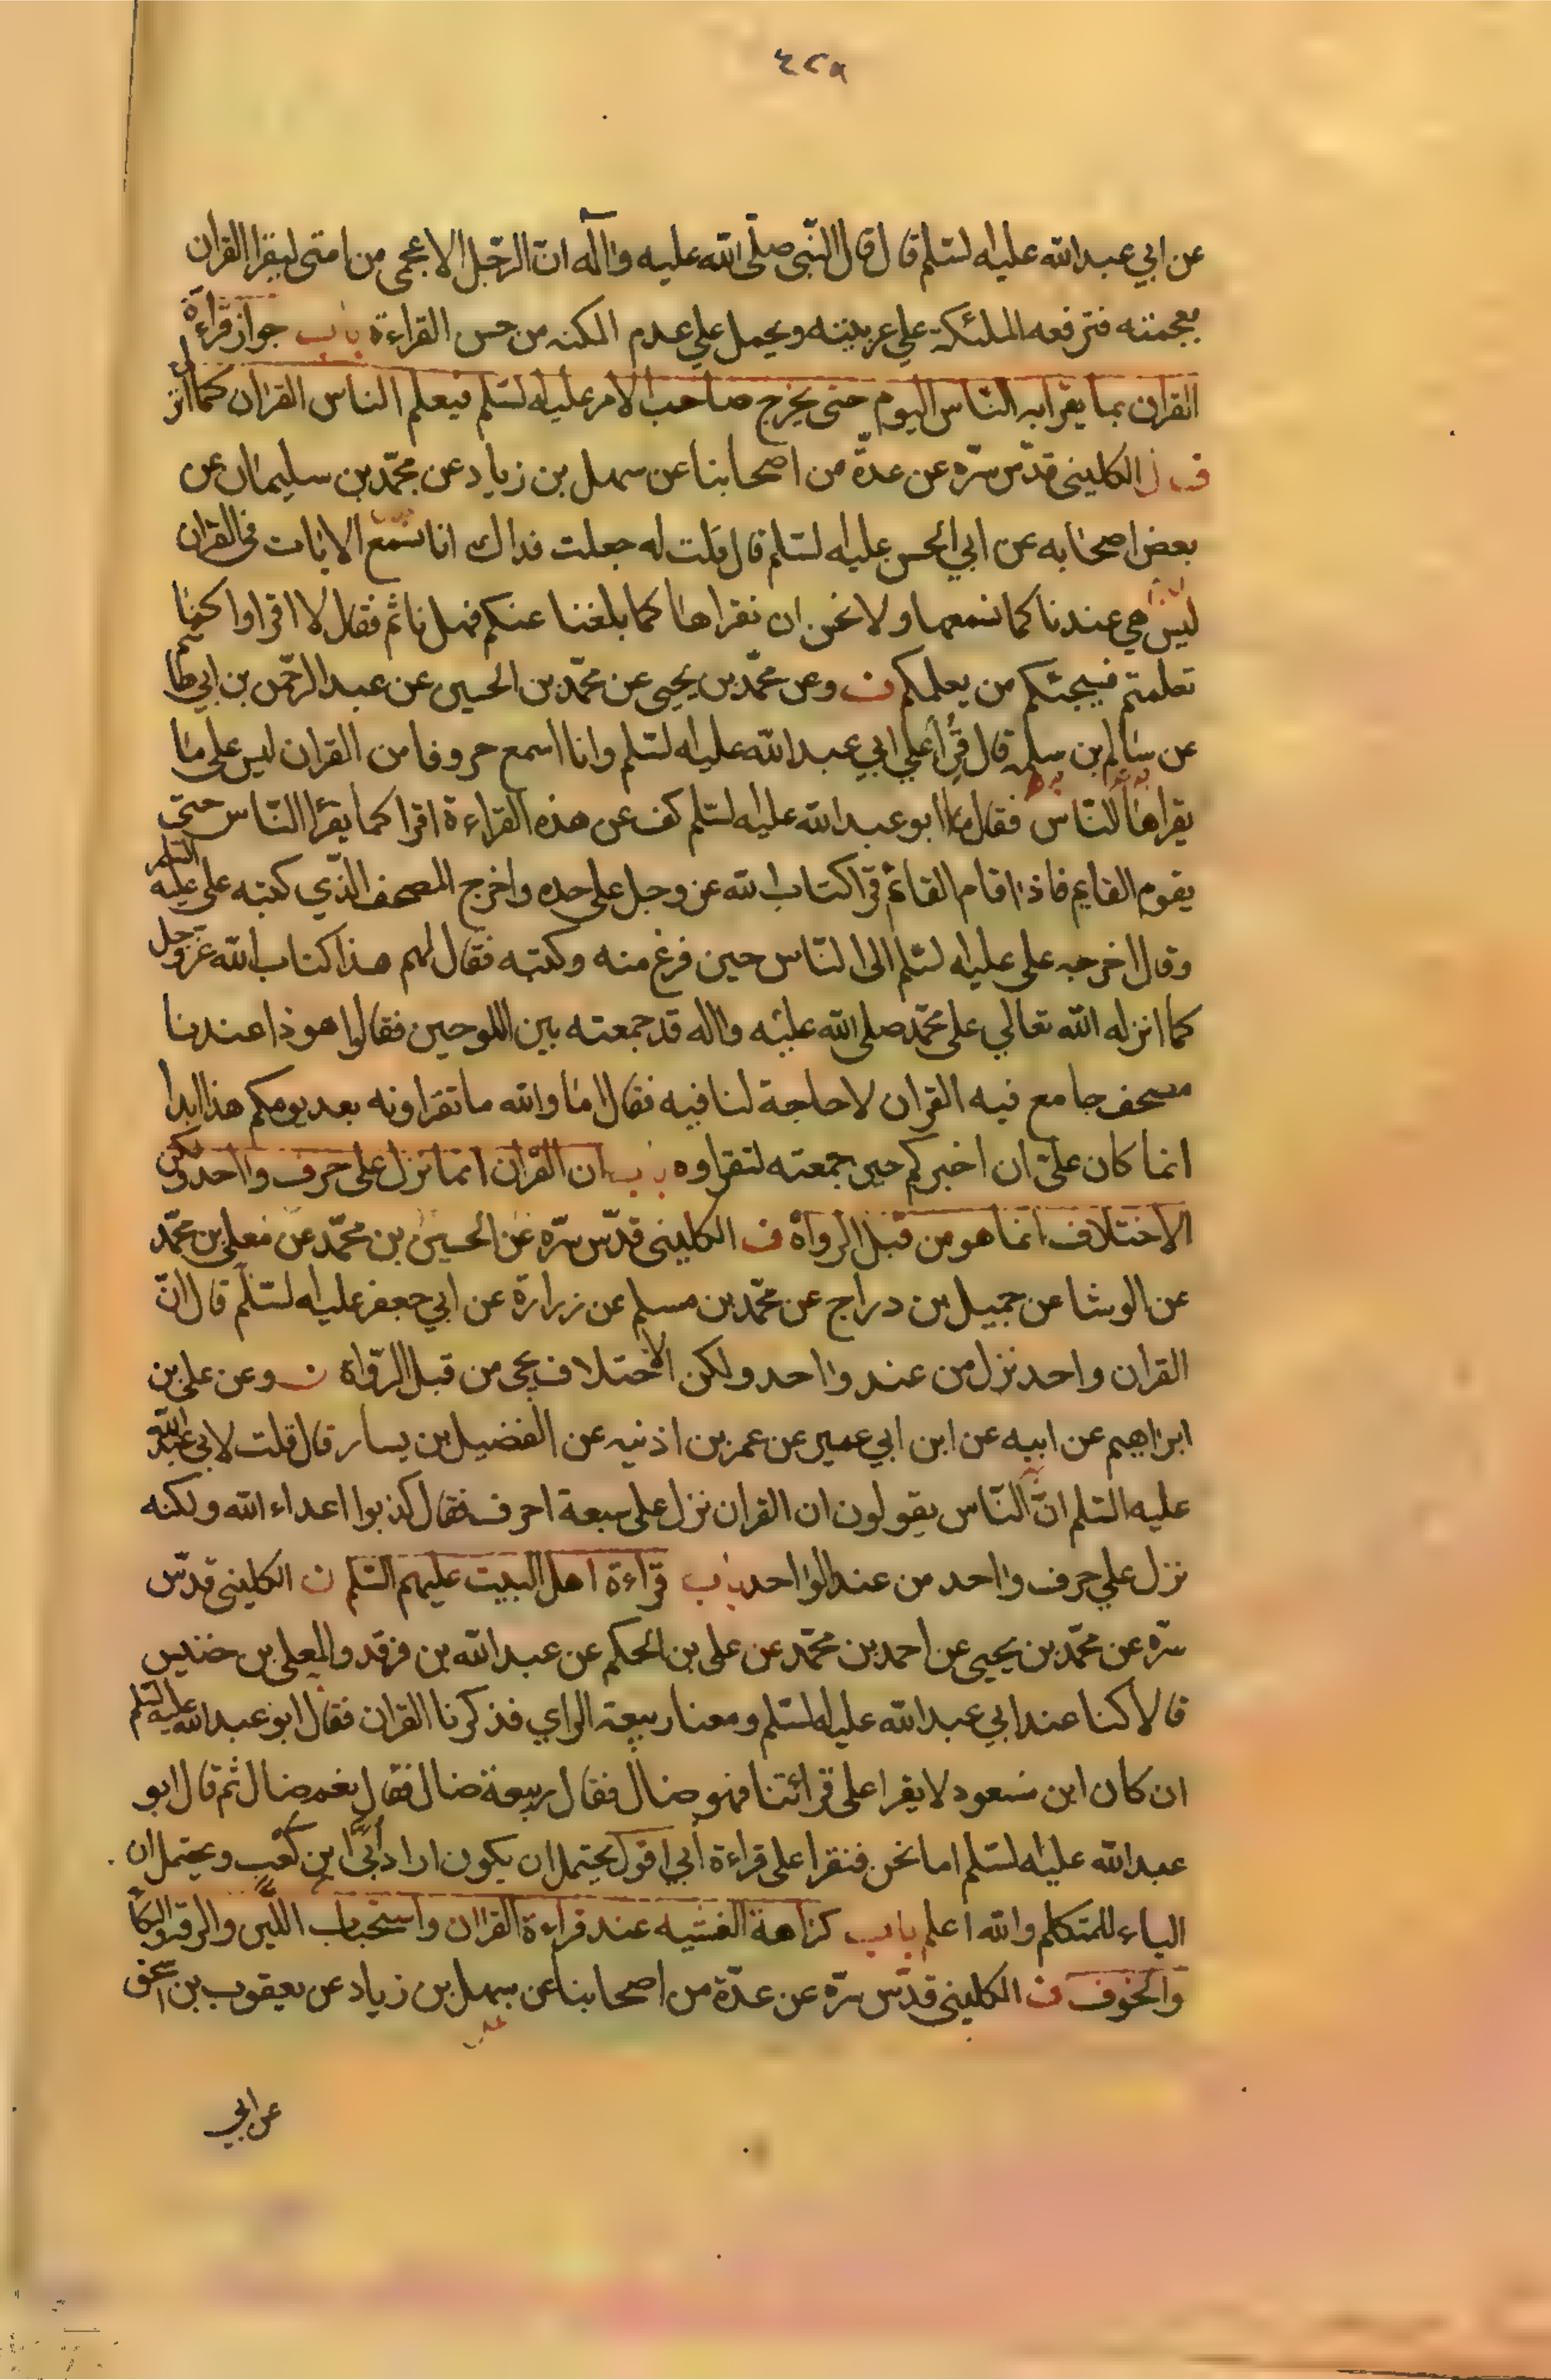 ٤٢٨
عن ابي عبد الله عليه السلم قال قال النبى صلى الله عليه واله ان الرجل الاعجمى من امتى ليقرا القران
بعجمته فترفعه الملئكة علي عربيته ويحمل علي عدم المكنه من حسن القراءة باب جواز قراءة
القران بما يقرا به الناس اليوم حتى يخرج صاحب الامر عليه السلم فيعلم الناس القران كما انزل
ف الكلينى قدس سره عن عدة من اصحابنا عن سهل بن زياد عن محمد بن سليمان عن
بعض اصحابه عن ابي الحسن عليه السلم قال قلت له جعلت فداك انا نسمع الايات في القران
ليس هي عندنا كما نسمعها ولا نحسن ان نقراها كما بلغنا عنكم فهل ناثم فقال لا اقراوا كما
تعلمتم فسيجئكم من يعلمكم ف وعن محمد بن يحيى عن محمد بن الحسين عن عبد الرحمن بن ابي هاشم
عن سالم بن سلمه قال قرا علي ابي عبد الله عليه السلم وانا اسمع حروفا من القران ليس على ما
يقراها الناس فقال ابو عبد الله عليه السلم كف عن هذه القراءة اقرا كما يقرا الناس حتى
يقوم القايم فاذا قام القائم قرا كتاب الله عز وجل على حده واخرج المصحف الذي كتبه على عليه السلم
وقال اخرجه على عليه السلم الى الناس حين فرغ منه وكتبه فقال لهم هذا كتاب الله عز وجل
كما انزله الله تعالي على محمد صلى الله عليه واله قد جمعته بين اللوحين فقالوا هو ذا عندنا
مصحف جامع فيه القران لا حاجة لنا فيه فقال اما والله ما تقراونه بعد يومكم هذا ابدا
انما كان على ان اخبركم حين جمعته لتقراوه باب ان القران انما نزل على حرف واحد ولكن
الاختلاف انما هو من قبل الرواة ف الكلينى قدس سره عن الحسين بن محمد عن معلى بن محمد
عن الوشا عن جميل بن دراج عن محمد بن مسلم عن زرارة عن ابي جعفر عليه السلم قال ان
القران واحد نزل من عند واحد ولكن الاختلاف يجى من قبل الرواة ف وعن على بن
ابراهيم عن ابيه عن ابن ابي عمير عن عمر بن اذنيه عن الفضيل بن يسار قال قلت لابي عبد الله
عليه السلم ان الناس يقولون ان القران نزل على سبعة احرف فقال كذبوا اعداء الله ولكنه
نزل علي حرف واحد من عند الواحد باب قراءة اهل البيت عليهم السلم ف الكلينى قدس
سره عن محمد بن يحيى عن احمد بن محمد عن على بن الحكم عن عبد الله بن فرقد والمعلى بن خنيس
قالا كنا عند ابي عبد الله عليه السلم ومعنا ربيعة الراي فذكرنا القران فقال ابو عبد الله عليه السلم
ان كان ابن مسعود لا يقرا على قرائتنا فهو ضال فقال ربيعة ضال فقال نعم ضال ثم قال ابو
عبد الله عليه السلم اما نحن فنقرا على قراءة أبي اقول يحتمل ان يكون اراد أبي ابن كعب ويحتمل ان
الياء للمتكلم والله اعلم باب كراهة الغشيه عند قراءة القران واستحباب اللين والرقة والبكا
والخوف ف الكلينى قدس سره عن عدة من اصحابنا عن سهل بن زياد عن يعقوب بن اسحق
عن ابي